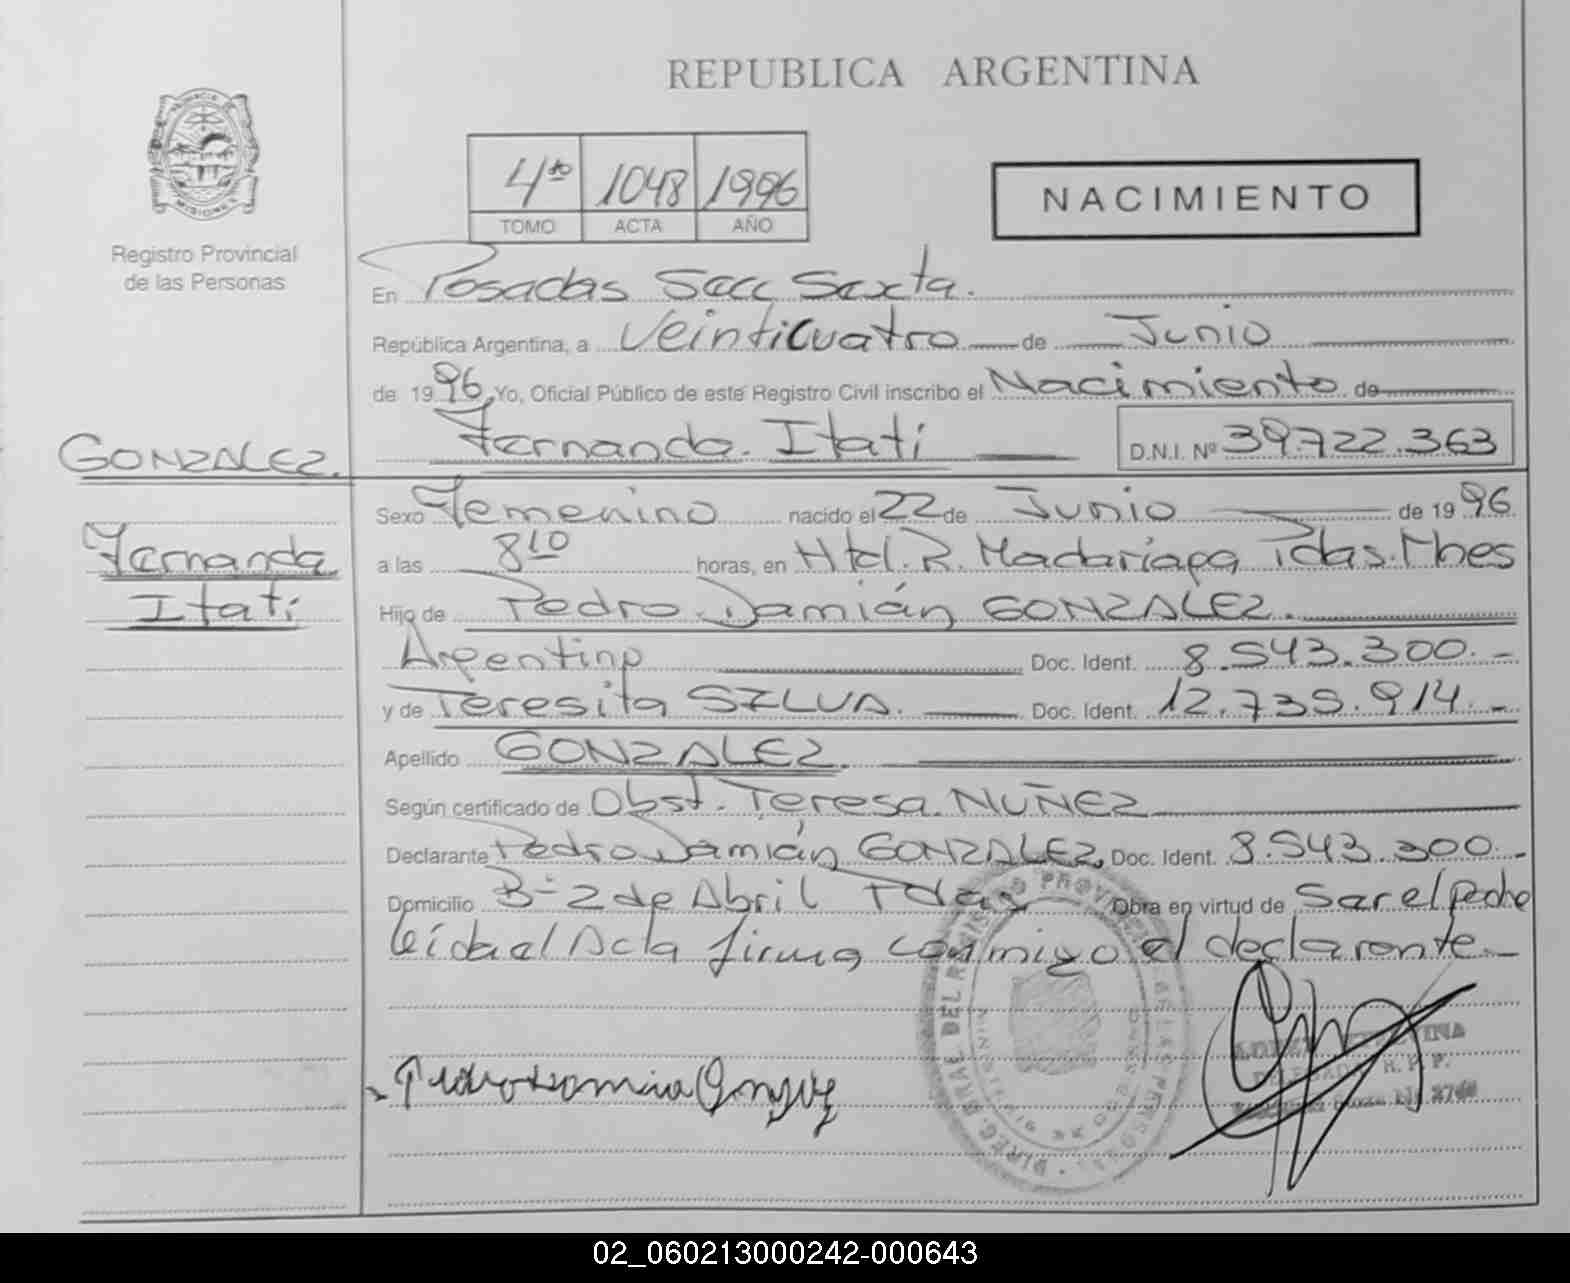 REPUBLICA ARGENTINA
PROVINCIA DE
MISIONES
Registro Provincial
de las Personas
4to 1048 1996
TOMO ACTA AÑO
NACIMIENTO
En Posadas Secc Sexta.
República Argentina, a Veinticuatro de Junio
de 1996, Yo, Oficial Público de este Registro Civil inscribo el Nacimiento de
Fernanda. Itatí D.N.I. Nº 39.722.363
GONZALEZ.
Fernanda
Itatí
Sexo Femenino nacido el 22 de Junio de 1996
a las 8 10 horas, en Htal. R. Madariaga Pdas. Mnes
Hijo de Pedro Damián GONZALEZ.
Argentino Doc. Ident. 8.543.300.-
y de Teresita SILVA. Doc. Ident. 12.735.914.-
Apellido GONZALEZ.
Según certificado de Obst. Teresa. NUÑEZ
Declarante Pedro Damián GONZALEZ, Doc. Ident. 8.543.300.-
Domicilio B- 2 de Abril Pdas Obra en virtud de Ser el padre
leída el Acta firma conmigo el declarante.-
DIREC. GRAL. DEL REGISTRO PROVINCIAL DE LAS PERSONAS
MINISTERIO DE GOBIERNO
R. P. P.
02_060213000242-000643